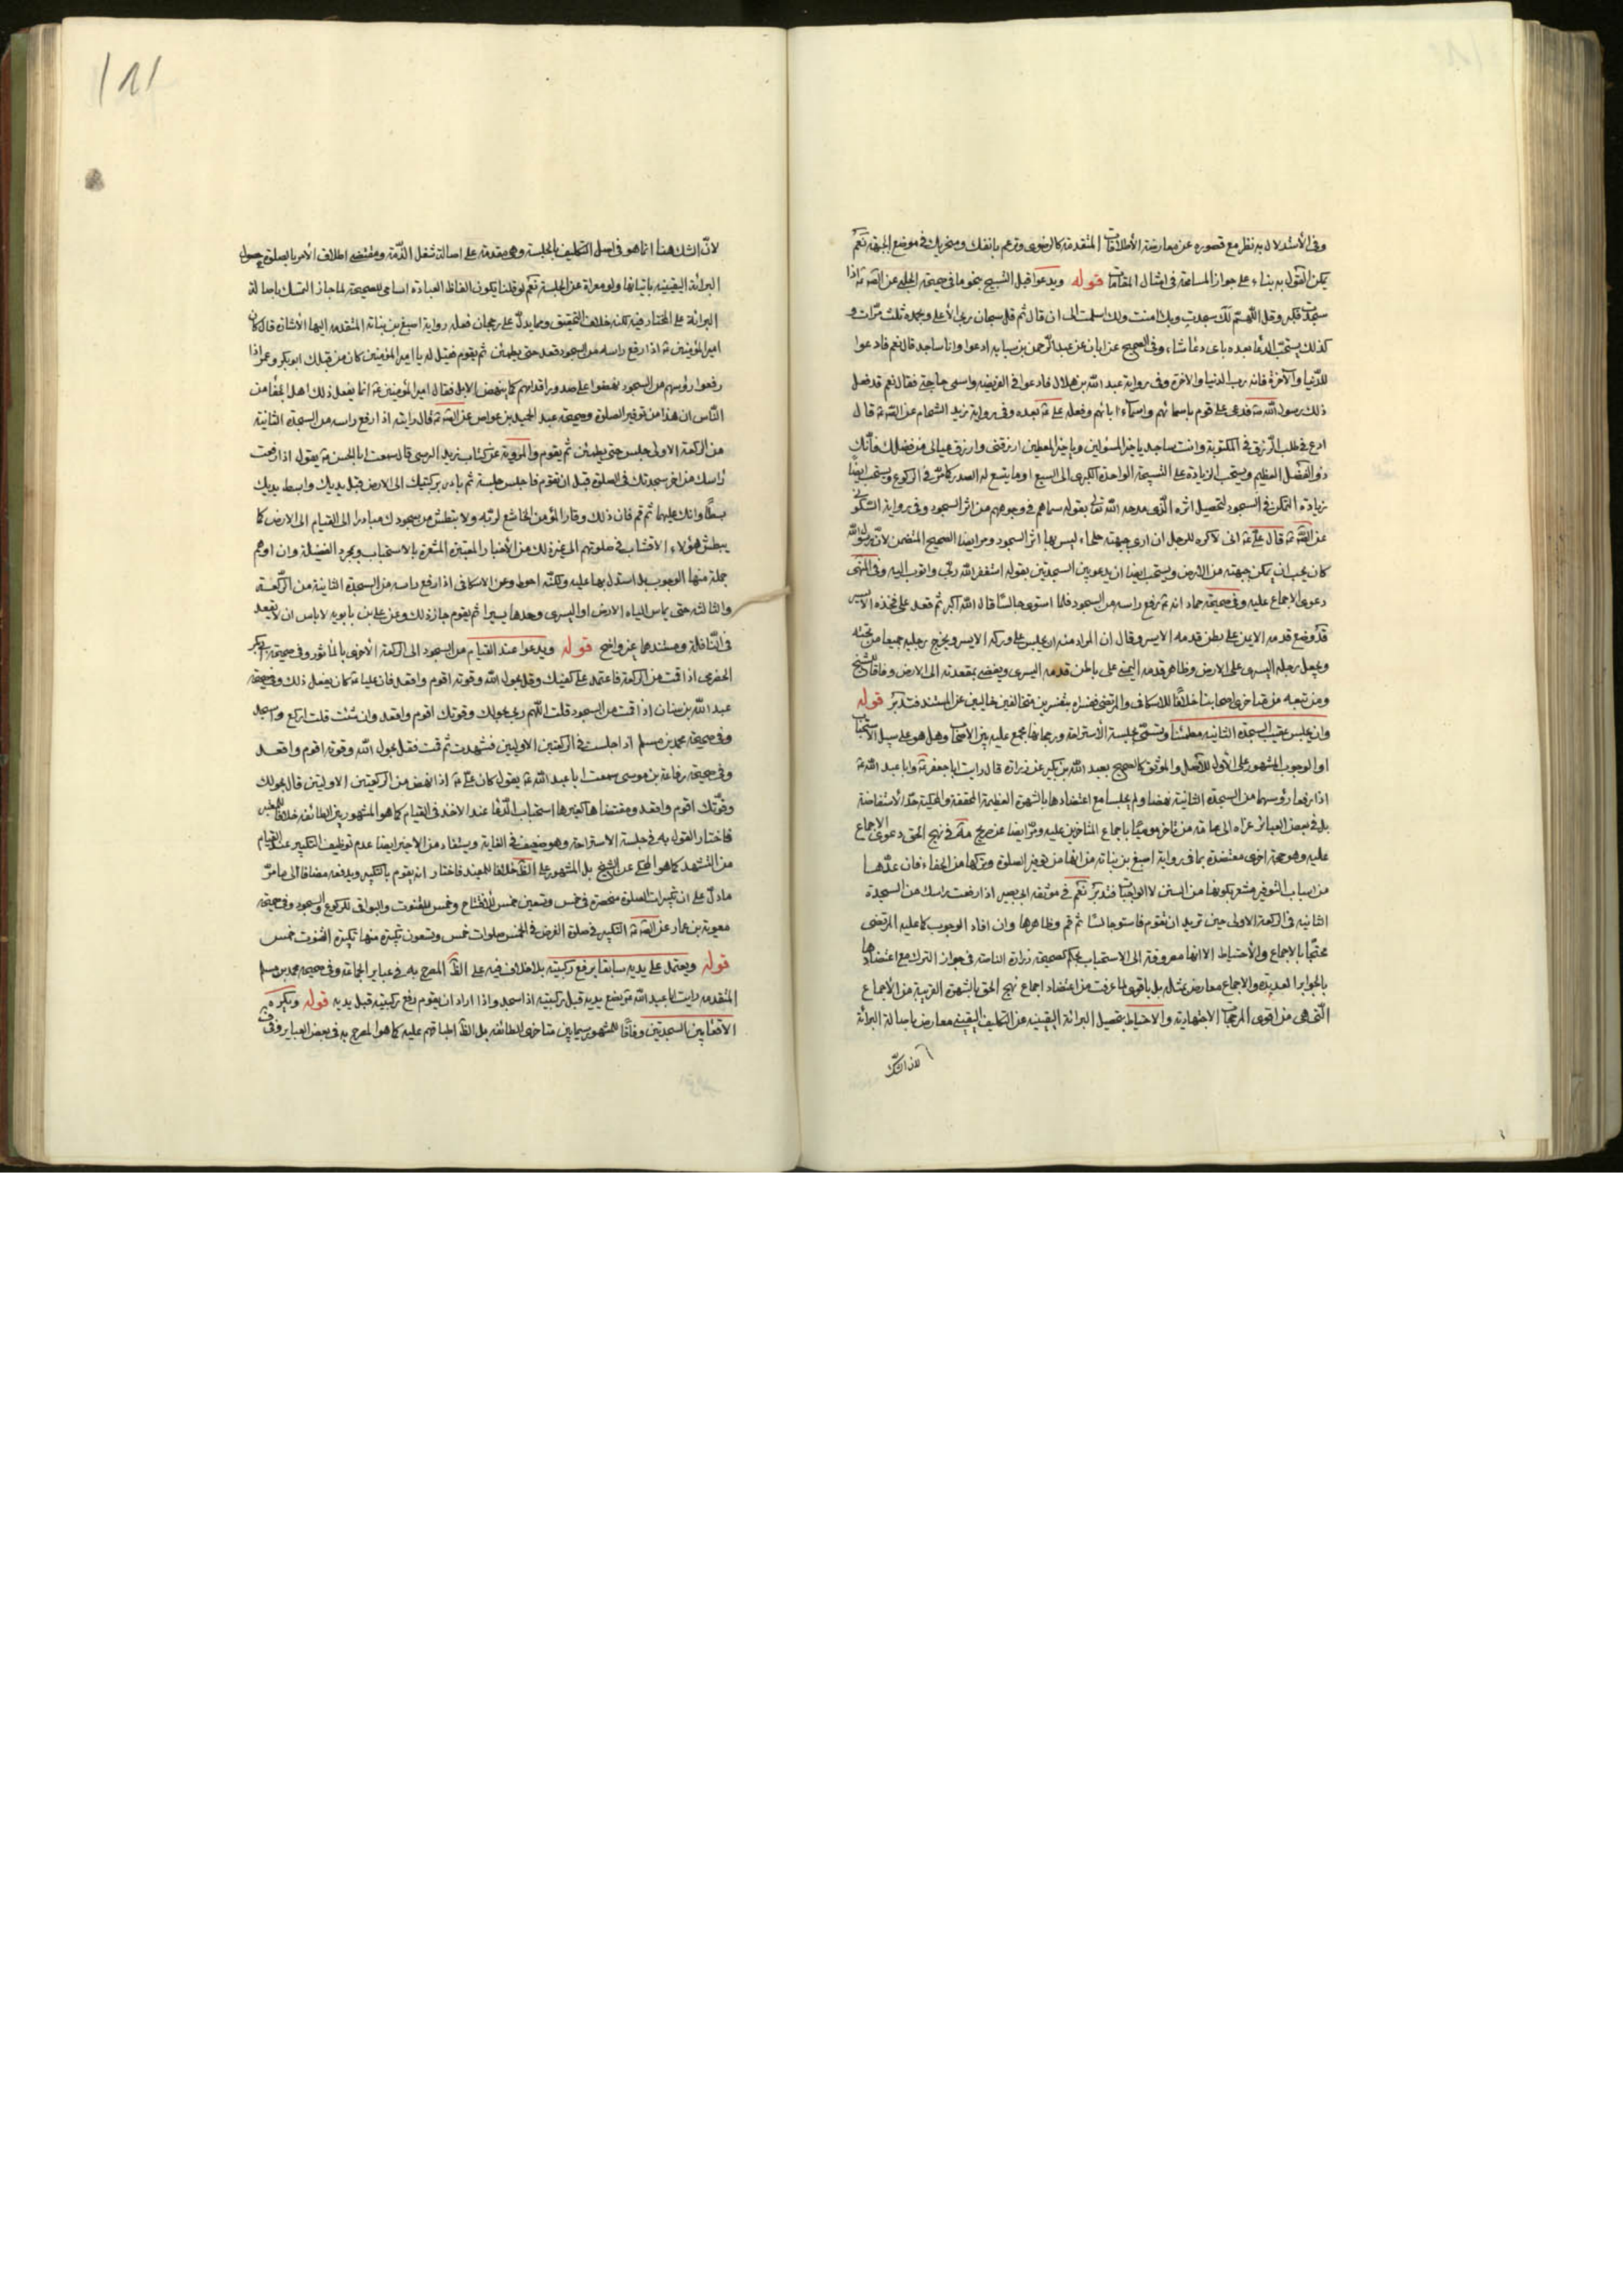 وفى الأستدلال به نظر مع قصوره عن معارضة الأطلاقات المتقدمة كالرضوى وترغم بانفك ومنخريك فى موضع الجبهة نعم
يمكن القول به بناء على جواز المسامحة فى امثال المقامات قوله ويدعوا قبل التسبيح بنحو ما فى صحيحة الحلبى عن الصّ ع اذا
سجدت فكبر وقل اللّهم لك سجدت وبك امنت ولك اسلمت الى ان قال ثم قل سبحان ربى الأعلى وبحمده ثلث مرّات و
كذلك يستحبّ الدعا بعده باى دعا شاء وفى الصحيح عن ابان عن عبد الرّحمن بن سيابه ادعوا وانا ساجد قال نعم فادعوا
للدّنيا والآخرة فانه رب الدنيا والاخرة وفى رواية عبد اللّه بن هلال فادعوا فى الفريضه واسمى حاجتى فقال نعم قد فعل
ذلك رسول اللّه ص فدعى على قوم باسمائهم واسماء ابائهم وفعله على ع بعده وفى رواية زيد الشحام عن الصّ ع قال
ادع فى طلب الرّزق فى المكتوبة وانت ساجد يا خير المسئولين ويا خير المعطين ارزقنى وارزق عيالى من فضلك فانّك
ذو الفضل العظيم ويستحب الزيادة على التسبيحة الواحدة الكبرى الى السبع او ما يتسع له الصدر كما مرّ فى الركوع ويستحب ايضا
زيادة التمكن فى السجود لتحصيل اثره الّذى مدحه اللّه تعالى بقوله سماهم فى وجوههم من اثر السجود وفى رواية السّكونى
عن الصّ ع قال على ع انى لاكره للرجل ان ارى جبهته جلحاء ليس بها اثر السجود ومر ايضا الصحيح المتضمن لانّ رسول اللّه
كان يحب ان يمكن جبهته من الارض ويستحب ايضا ان يدعو بين السجدتين بقوله استغفر اللّه ربّى واتوب اليه وفى المنتهى
دعوى الاجماع عليه وفى صحيحة حماد انه ع رفع راسه من السجود فلما استوى جالسًا قال اللّه اكبر ثم قعد على فخذه الايسر
قد وضع قدمه الايمن على بطن قدمه الايسر وقال ان المراد منه ان يجلس على وركه الايسر ويخرج رجليه جميعا من تحته
ويجعل رجله اليسرى على الارض وظاهر قدمه اليمنى على باطن قدمه اليسرى ويفضى بمقعدته الى الارض وفاقا للشيخ
ومن تبعه من متاخرى اصحابنا خلافًا للاسكافى والمرتضى ففسراه بتفسيرين متخالفين خاليين عن المستند فتدبّر قوله
وان يجلس عقيب السجدة الثانيه مطمئنا وتسمّى بجلسة الأستراحة ورجحانها مجمع عليه بين الاصحاب وهل هو على سبيل الاستحباب
او الوجوب المشهور على الأول للأصل والموثق كالصحيح بعبد اللّه بن بكير عن زرارة قال رايت ابا جعفر ع وابا عبد اللّه ع
اذا رفعا رؤسهما من السجدة الثانية نهضا ولم يجلسا مع اعتضادها بالشهرة العظيمة المحققة والمحكية حدّ الاستفاضة
بل فى بعض العبائر عزاه الى عامة من تاخر مؤميًا باجماع المتاخرين عليه ومرّ ايضا عن صريح مه فى نهج الحق دعوى الاجماع
عليه وهو حجة اخرى معتضدة بما فى رواية اصبغ بن نباته من انها من توقير الصلوة وتركها من الجفاء فان عدّها
من اسباب التوقير مشعر بكونها من السنن لا الواجبات فتدبر نعم فى موثقه ابى بصير اذا رفعت راسك من السجدة
الثانيه فى الركعة الاولى حين تريد ان تقوم فاستو جالسًا ثم قم وظاهرها وان افاد الوجوب كما عليه المرتضى
محتجّا بالاجماع والأحتياط الا انها مصروفة الى الاستحباب بحكم صحيحة زرارة الناصة فى جواز الترك مع اعتضادها
بالجوابر العديدة والاجماع معارض بمثله بل باقوى لما عرفت من اعتضاد اجماع نهج الحق بالشهرة القريبة من الأجماع
الّتى هى من اقوى المرجحات الاجتهادية والاحتياط بتحصيل البرائة اليقينيه عن التكليف اليقينى معارض باصالة البرائة
لان الشك
لانّ الشك هنا انما هو فى اصل التكليف بالجلسة وهى مقدمة على اصالة شغل الذّمة ومقتضى اطلاق الأمر بالصلوة حصول
البرائة اليقينيه باتيانها ولو معراة عن الجلسة نعم لو قلنا بكون الفاظ العبادة اسامى للصحيحة لما جاز التمسك باصالة
البرائة على المختار فيه لكنه خلاف التحقيق ومما يدلّ على رجحان فعله رواية اصبغ بن نباته المتقدمه اليها الاشارة قال كان
امير المؤمنين ع اذا رفع راسه من السجود قعد حتى يطمئن ثم يقوم فقيل له يا امير المؤمنين كان من قبلك ابو بكر وعمر اذا
رفعوا رؤسهم من السجود نهضوا على صدور اقدامهم كما ينهض الابل فقال امير المؤمنين ع انما يفعل ذلك اهل الجفا من
النّاس ان هذا من توقير الصلوة وصحيحه عبد الحميد بن عواض عن الصّ ع قال رايته اذا رفع راسه من السجدة الثانية
من الركعة الاولى جلس حتى يطمئن ثم يقوم والمروية عن كتاب زيد النرسى قال سمعت ابا الحسن ع يقول اذا رفعت
رأسك من اخر سجدتك فى الصلوة قبل ان تقوم فاجلس جلسة ثم بادر بركبتيك الى الارض قبل يديك وابسط يديك
بسطًا واتك عليهما ثم قم فان ذلك وقار المؤمن الخاشع لربّه ولا تبطش من سجودك مبادرا الى القيام الى الارض كما
يبطش هؤلاء الاقشاب فى صلوتهم الى غير ذلك من الأخبار المعتبرة المشعرة بالاستحباب وبمجرد الفضيلة وان اوهم
جملة منها الوجوب بل استدل بها عليه ولكنّه احوط وعن الاسكافى اذا رفع راسه من السجدة الثانية من الركعة
والثالثه حتى يماس الياه الارض او اليسرى وحدها يسيرا ثم يقوم جاز ذلك وعن على بن بابويه لا باس ان لا يقعد
فى النّافلة ومستندهما غير واضح قوله ويدعوا عند القيام من السجود الى الركعة الأخرى بالمأثور وفى صحيحة ابى بكر
الحضرمى اذا قمت من الركعة فاعتمد على كفيك وقل بحول اللّه وقوته اقوم واقعد فان عليا ع كان يفعل ذلك وفى صحيحه
عبد اللّه بن سنان اذا قمت من السجود قلت اللّهم ربى بحولك وقوتك اقوم واقعد وان شئت قلت اركع واسجد
وفى صحيحة محمد بن مسلم اذا جلست فى الركعتين الاوليين فتشهدت ثم قمت فقل بحول اللّه وقوته اقوم واقعد
وفى صحيحة رفاعة بن موسى سمعت ابا عبد اللّه ع يقول كان على ع اذا نهض من الركعتين الاوليتين قال بحولك
وقوّتك اقوم واقعد ومقتضاها كغيرها استحباب الدّعا عند الاخذ فى القيام كما هو المشهور بين الطائفه خلافا للمعتبر
فاختار القول به فى جلسة الاستراحة وهو ضعيف فى الغاية ويستفاد من الاخير ايضا عدم توظيف التكبير عند القيام
من التشهد كما هو المحكى عن الشيخ بل المشهور على الظ خلافا للمفيد فاختار انه يقوم بالتكبير ويدفعه مضافا الى ما مرّ
ما دلّ على ان تكبيرات الصلوة منحصرة فى خمس وتسعين خمس للأفتتاح وخمس للقنوت والبواقى للركوع والسجود وفى صحيحة
معوية بن عمار عن الصّ ع التكبير فى صلوة الفرض فى الخمس صلوات خمس وتسعون تكبيرة منها تكبيرة القنوت خمس
قوله ويعتمد على يديه سابقا برفع ركبتيه بلا خلاف فيه على الظ المصرح به فى عباير الجماعة وفى صحيحه محمد بن مسلم
المتقدمه رايت ابا عبد اللّه ع يضع يديه قبل ركبتيه اذا سجد واذا اراد ان يقوم رفع ركبتيه قبل يديه قوله ويكره
الاقعا بين السجدتين وفاقًا للمشهور سيما بين متاخرى الطائفه بل الظ اطباقهم عليه كما هو المصرح به فى بعض العباير